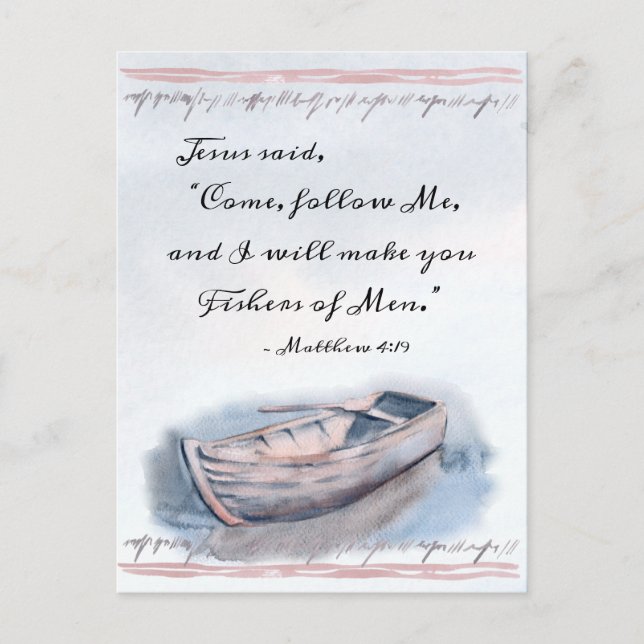 Jesus said,
“Come, follow Me,
and I will make you
Fishers of Men.”
~ Matthew 4:19